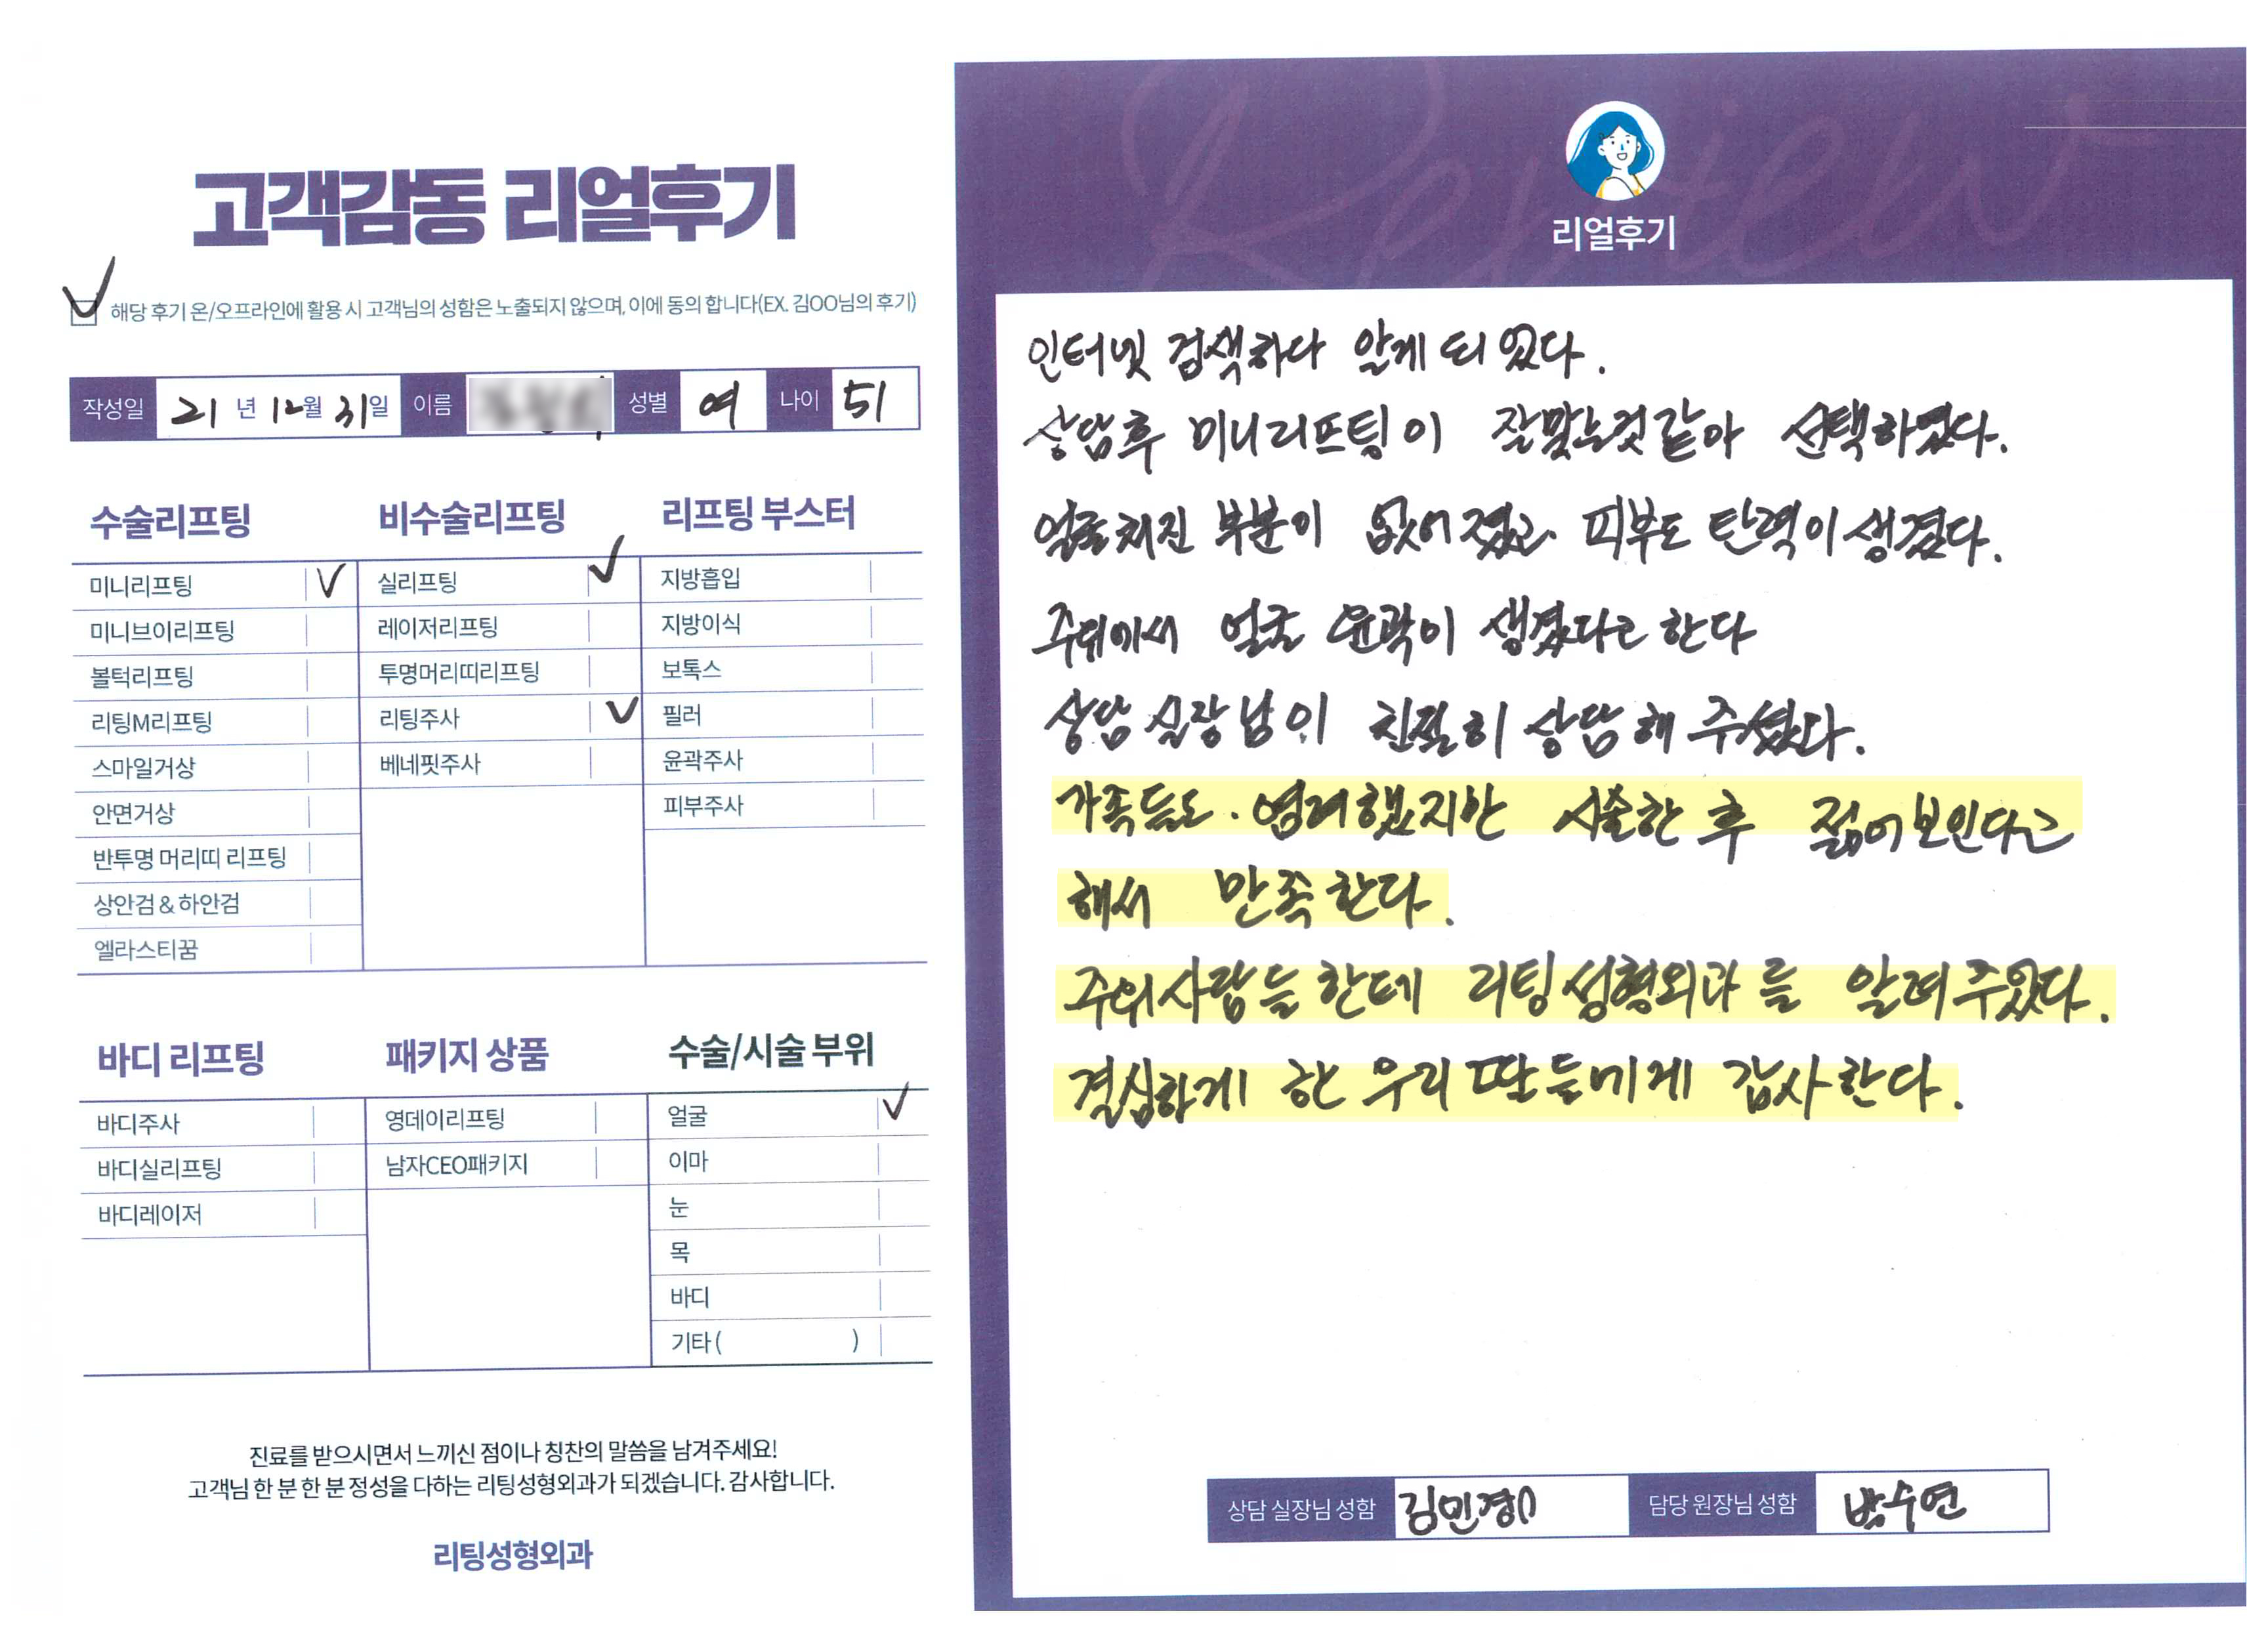 고객감동 리얼후기
해당 후기 온/오프라인에 활용 시 고객님의 성함은 노출되지 않으며, 이에 동의 합니다(EX. 김OO님의 후기)
작성일 21 년 12월 31일 이름 성별 여 나이 51
수술리프팅
미니리프팅
미니브이리프팅
볼턱리프팅
리팅M리프팅
스마일거상
안면거상
반투명 머리띠 리프팅
상안검 & 하안검
엘라스티꿈
비수술리프팅
실리프팅
레이저리프팅
투명머리띠리프팅
리팅주사
베네핏주사
리프팅 부스터
지방흡입
지방이식
보톡스
필러
윤곽주사
피부주사
바디 리프팅
바디주사
바디실리프팅
바디레이저
패키지 상품
영데이리프팅
남자CEO패키지
수술/시술 부위
얼굴
이마
눈
목
바디
기타 ( )
진료를 받으시면서 느끼신 점이나 칭찬의 말씀을 남겨주세요!
고객님 한 분 한 분 정성을 다하는 리팅성형외과가 되겠습니다. 감사합니다.
리팅성형외과
Review
리얼후기
인터넷 검색하다 알게 되었다.
상담후 미니리프팅이 잘맞는것같아 선택하였다.
얼굴쳐진 부분이 없어졌고 피부도 탄력이생겼다.
주위에서 얼굴 윤곽이 생겼다고 한다
상담 실장님이 친절히 상담해 주셨다.
가족들도. 염려했지만 시술한 후 젊어보인다고
해서 만족한다.
주위사람들한테 리팅성형외과를 알려주었다.
결심하게 한 우리 딸들에게 감사한다.
상담 실장님 성함 김민경 담당 원장님 성함 박수연